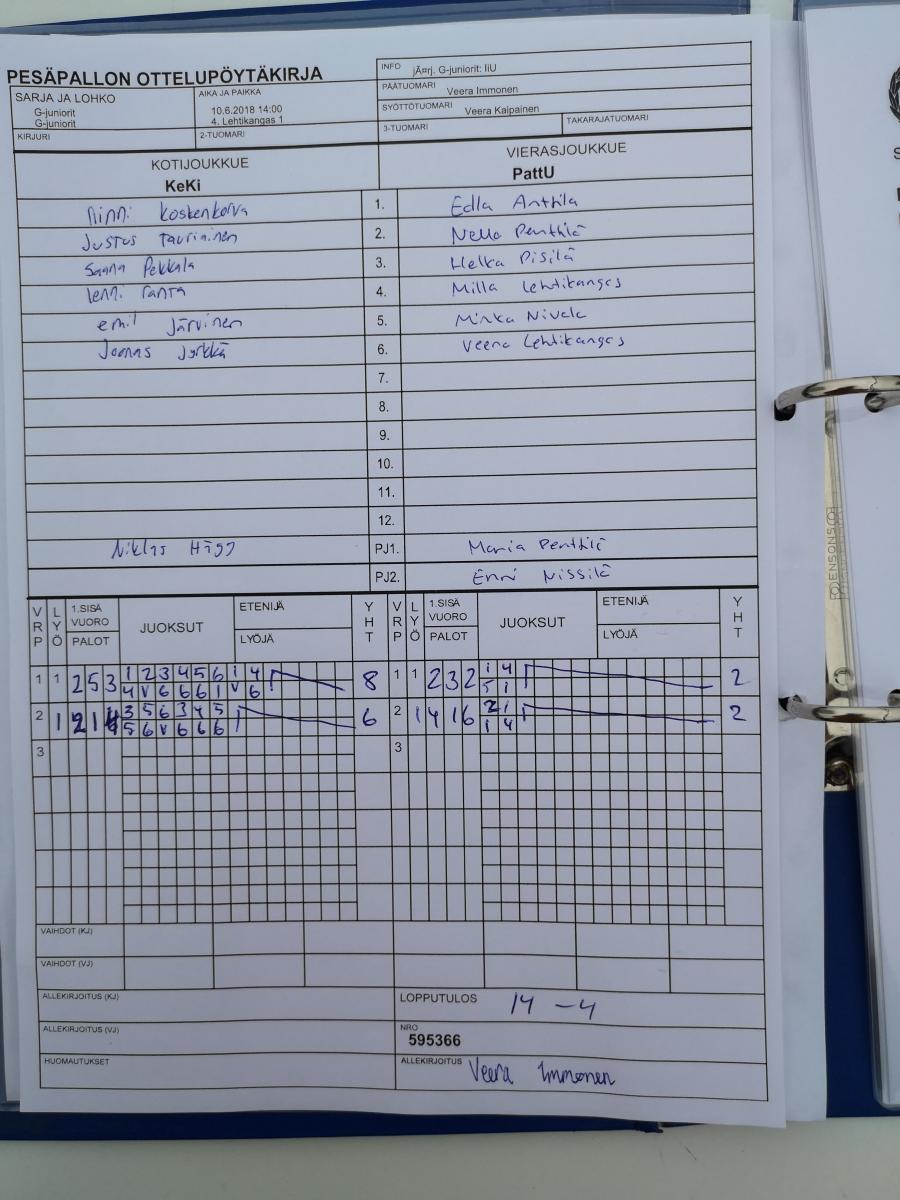 PESÄPALLON OTTELUPÖYTÄKIRJA
INFO jÃ¤rj. G-juniorit: IiU
PÄÄTUOMARI Veera Immonen
SYÖTTÖTUOMARI Veera Kaipainen
3-TUOMARI TAKARAJATUOMARI
SARJA JA LOHKO
G-juniorit
G-juniorit
KIRJURI
AIKA JA PAIKKA
10.6.2018 14:00
4. Lehtikangas 1
2-TUOMARI
KOTIJOUKKUE VIERASJOUKKUE
KeKi PattU
Ninni Koskenkorva 1. Edla Anttila
Justus Tauriainen 2. Nella Penttilä
Saana Pekkala 3. Helka Pisilä
lenni ranta 4. Milla Lehtikangas
emil Järvinen 5. Minka Nivala
Joonas Jyrkkä 6. Veera Lehtikangas
7.
8.
9.
10.
11.
12.
Niklas Hägg PJ1. Maria Penttilä
PJ2. Enni Nissilä
VRP LYÖ 1.SISÄ VUORO PALOT JUOKSUT ETENIJÄ LYÖJÄ YHT VRP LYÖ 1.SISÄ VUORO PALOT JUOKSUT ETENIJÄ LYÖJÄ YHT
1 1 2 5 3 1 2 3 4 5 6 1 4 8 1 1 2 3 2 1 4 2
4 V 6 6 6 1 V 6 5 1
2 1 2 1 4 3 5 6 3 4 5 6 2 1 4 1 6 2 1 2
5 6 V 6 6 6 1 4
3 3
VAIHDOT (KJ)
VAIHDOT (VJ)
ALLEKIRJOITUS (KJ) LOPPUTULOS 14 - 4
ALLEKIRJOITUS (VJ) NRO 595366
HUOMAUTUKSET ALLEKIRJOITUS Veera Immonen